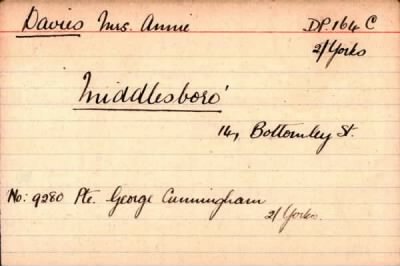 Davies Mrs. Annie DP. 164 C
2/Yorks
Middlesboro'
14, Bottomley St.
No: 9280 Pte. George Cunningham
2/Yorks.